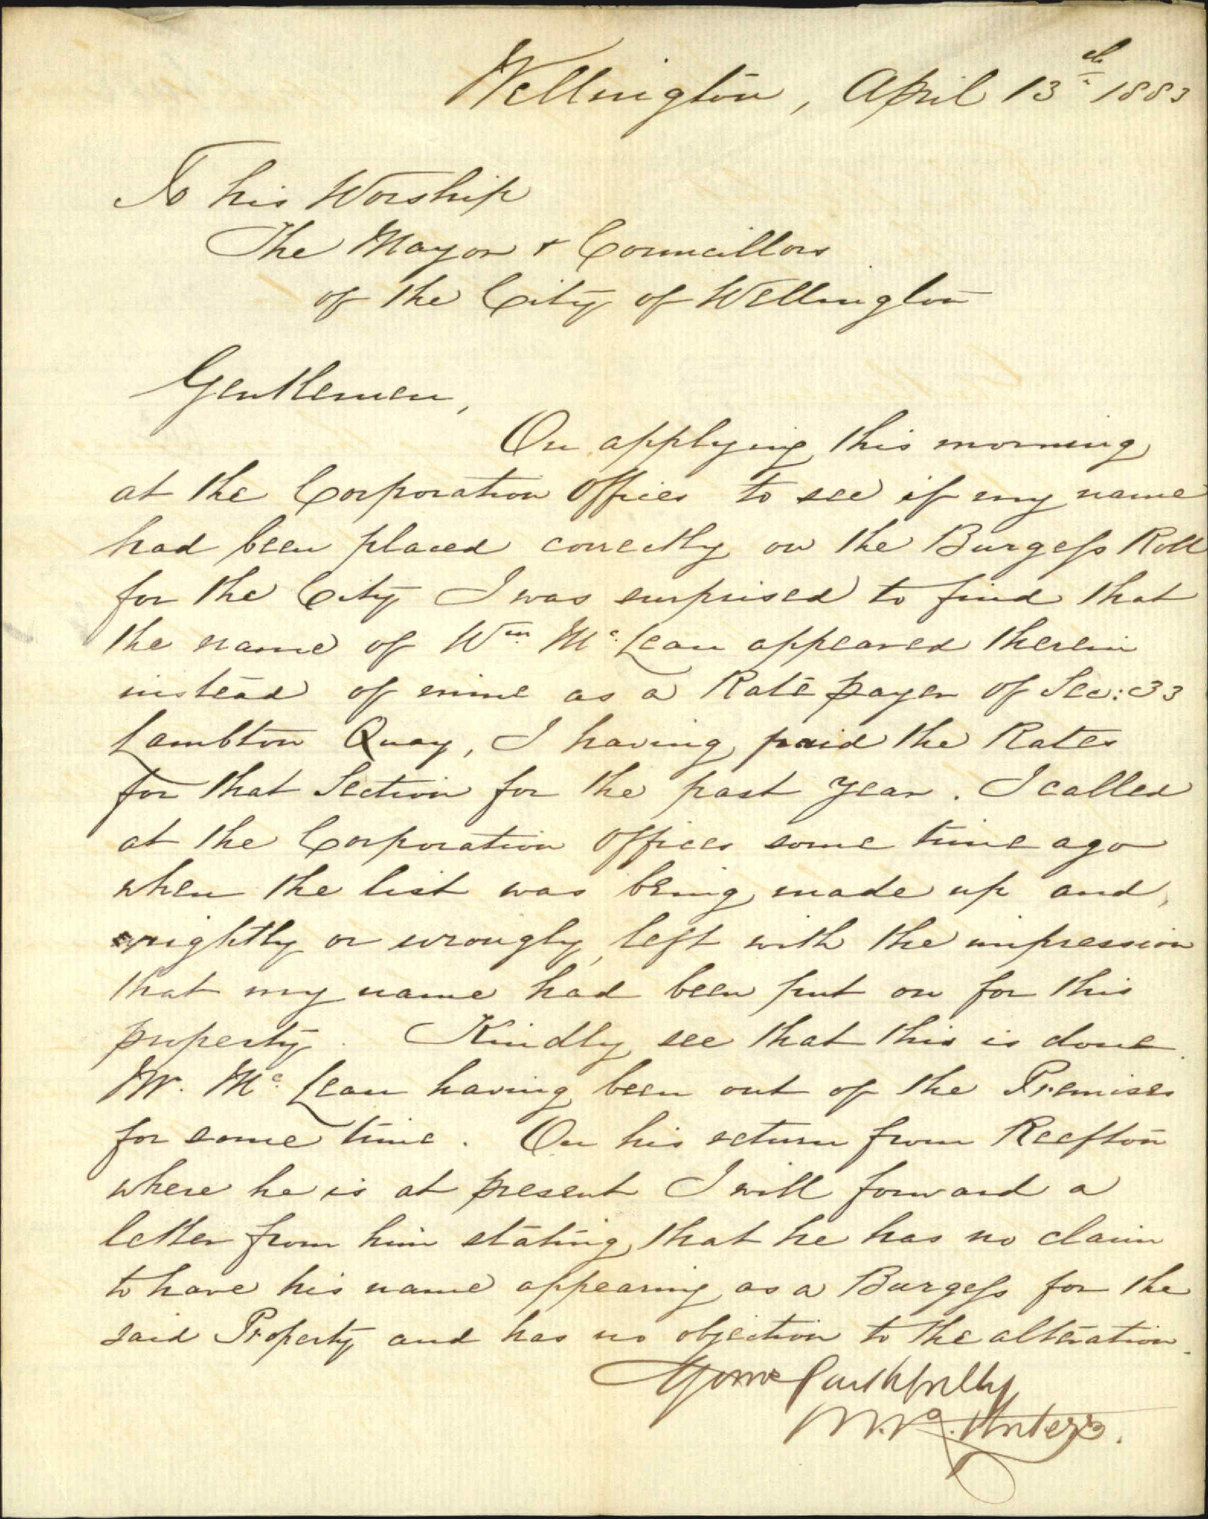 Wellington, April 13th 1883
To his Worship
The Mayor & Councillors
of the City of Wellington
Gentlemen,
On applying this morning
at the Corporation Offices to see if my name
had been placed correctly on the Burgess Roll
for the City I was surprised to find that
the name of Wm McLean appeared therein
instead of mine as a Rate payer of Sec: 33
Lambton Quay, I having paid the Rates
for that Section for the past year. I called
at the Corporation Offices some time ago
when the list was being made up and,
rightly or wrongly, left with the impression
that my name had been put on for this
property. Kindly see that this is done.
Mr. McLean having been out of the Premises
for some time. On his return from Reefton
where he is at present I will forward a
letter from him stating that he has no claim
to have his name appearing as a Burgess for the
said Property and has no objection to the alteration.
Yours faithfully